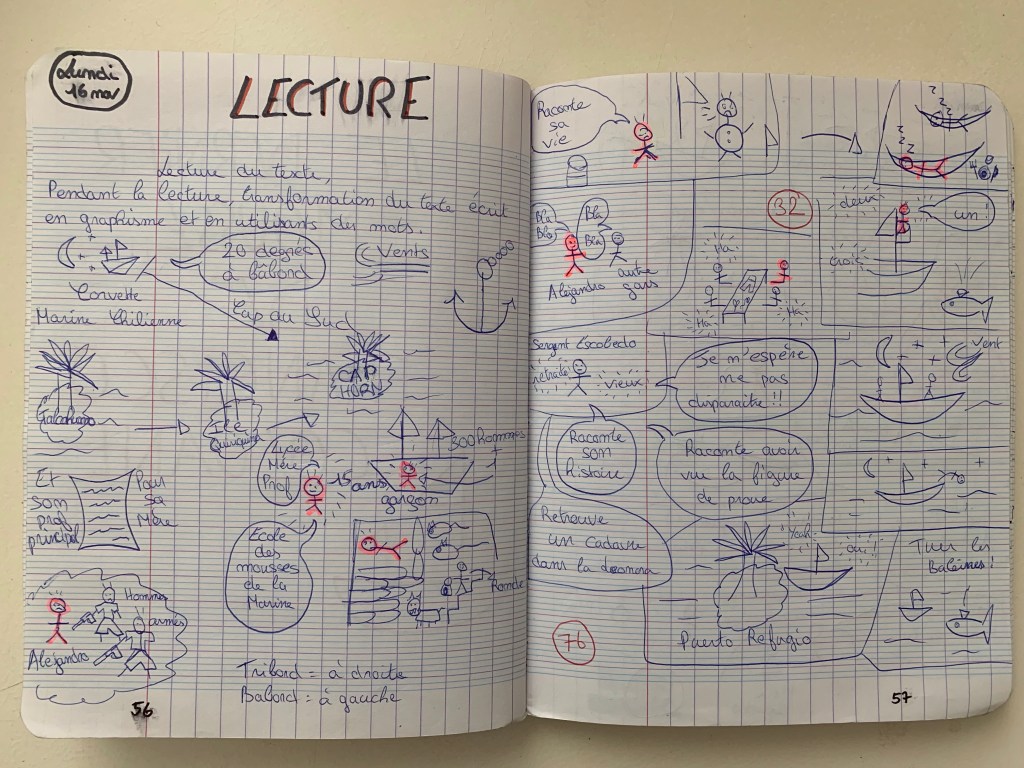 Lundi
16 nov
LECTURE
Lecture du texte,
Pendant la lecture, transformation du texte écrit
en graphisme et en utilisants des mots.
20 degrés
à bâbord
Vents
Corvette
Marine Chilienne
Cap au Sud
Galapagos
ILE
Quiriquina
CAP
HORN
Lycée
Mère
Prof
15 ans
garçon
300 hommes
+
1
Et
son
prof
principal
Pour
sa
Mère
École
des
mousses
de la
Marine
Ronde
Hommes
armés
Alejandro
Tribord = à droite
Babord = à gauche
56
Raconte
sa
vie
z
z
z
z
z
Bla
Bla
Bla
Bla
Alejandro
autre
gars
32
Ha
Ha
Ha
deux
trois
un !
Sergent Escobedo
retraité
vieux
Se m'espère
me pas
disparaitre !!
Vent
Raconte
son
histoire
Raconte avoir
vu la figure
de proue
Retrouve
un cadavre
dans la
76
Yeah
oui !
Puerto Refugio
Tuer les
Baleines !
57